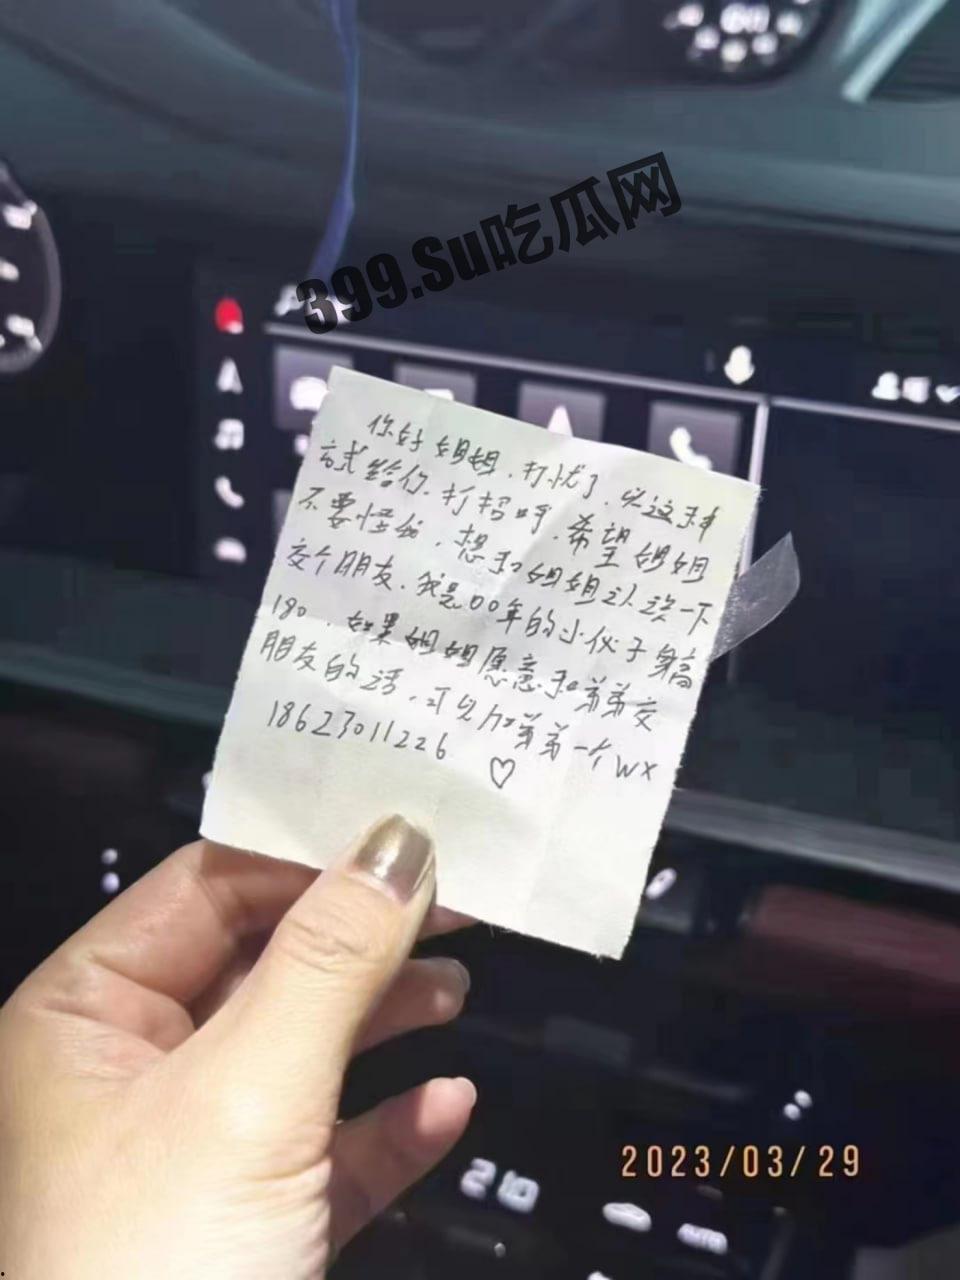 399.Su吃瓜网
你好姐姐，打扰了，以这种
方式给你打招呼，希望姐姐
不要怪我，想和姐姐认识一下
交个朋友，我是00年的小伙子身高
180，如果姐姐愿意和弟弟交
朋友的话，可以加弟弟一个WX
18623011226
♡
2023/03/29
21.0
AUTO